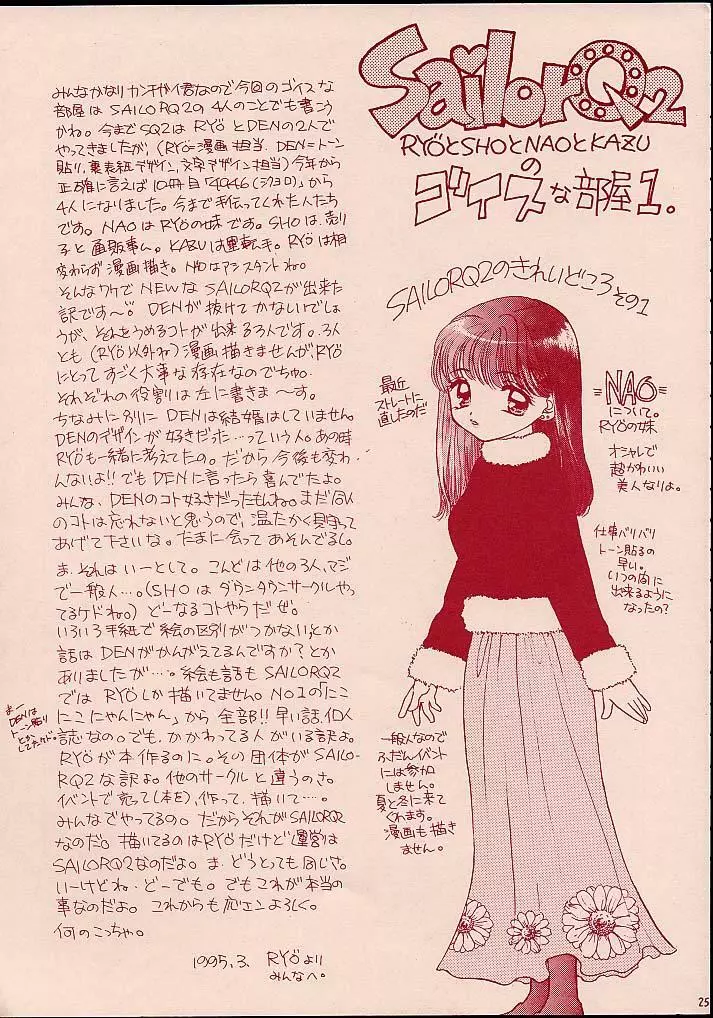 SailorQ2
RYÖとSHOとNAOとKAZU
の
ゴイスな部屋1。
みんなかなりカンチガイ君なので今回のゴイスな
部屋はSAILORQ2の4人のことでも書こう
かね。今までSQ2はRYÖとDENの2人で
やってきましたが、(RYÖ=漫画担当 DEN=トーン
貼り、裏表紙デザイン、文字デザイン担当)今年から
正確に言えば10冊目「4946(シクヨロ)」から
4人になりました。今まで手伝ってくれた人たち
です。NAOはRYÖの妹です。SHOは、売り
子と通販事ム。KAZUは運転手。RYÖは相
変わらず漫画描き。NAOはアシスタントね。
そんなワケでNEWなSAILORQ2が出来た
訳です〜。DENが抜けてかないいでしょ
うが、それをうめるコトが出来る3人です。3人
とも(RYÖ以外ね)漫画描きませんがRYÖ
にとってすごく大事な存在なのでちゅ。
それぞれの役割は左に書きま〜す。
ちなみに別にDENは結婚はしていません。
DENのデザインが好きだった…っていう人。あの時
RYÖも一緒に考えてたの。だから今後も変わ
んないよ!!でもDENに言ったら喜んでたよ。
みんな、DENのコト好きだったもんね。まだDEN
のコトは忘れないと思うので、温たかく見守って
あげて下さいな。たまに会ってあそんでるし。
ま、それはいーとして。こんどは他の3人、マジ
で一般人…。(SHOはダウンタウンサークルやっ
てるケドねっ)どーなるコトやらだぜ。
いろいろ手紙で絵の区別がつかない、とか
話はDENがかんがえてるんですか?とか
ありましたが…。絵も話もSAILORQ2
ではRYÖしか描いてません。NO1の「にこ
にこにゃんにゃん」から全部!!早い話、個人
誌なの。でも、かかわってる人がいる訳よ。
RYÖが本作るのに。その団体がSAILO-
RQ2な訳よ。他のサークルと違うのさ。
イベントで売って(本を)、作って、描いて…。
みんなでやってるの。だからそれがSAILORQ2
なのだ。描いてるのはRYÖだけど運営は
SAILORQ2なのだよ。ま、どうとっても同じさ。
いーけどね、どーでも。でもこれが本当の
事なのだよ。これからも応エンよろしく。
何のこっちゃ。
1995.3. RYÖより
みんなへ。
まー
DENは
トーン貼り
とか
してたけど。
SAILORQ2のきれいどころその1
最近
ストレートに
直したのだ
=NAO=
について。
RYÖの妹
オシャレで
超かわいい
美人なりよ。
仕事バリバリ
トーン貼るの
早い。
いつの間に
出来るように
なったの?
一般人なので
ふだんイベント
には参加
しません。
夏と冬に来て
くれます。
漫画も描き
ません。
25